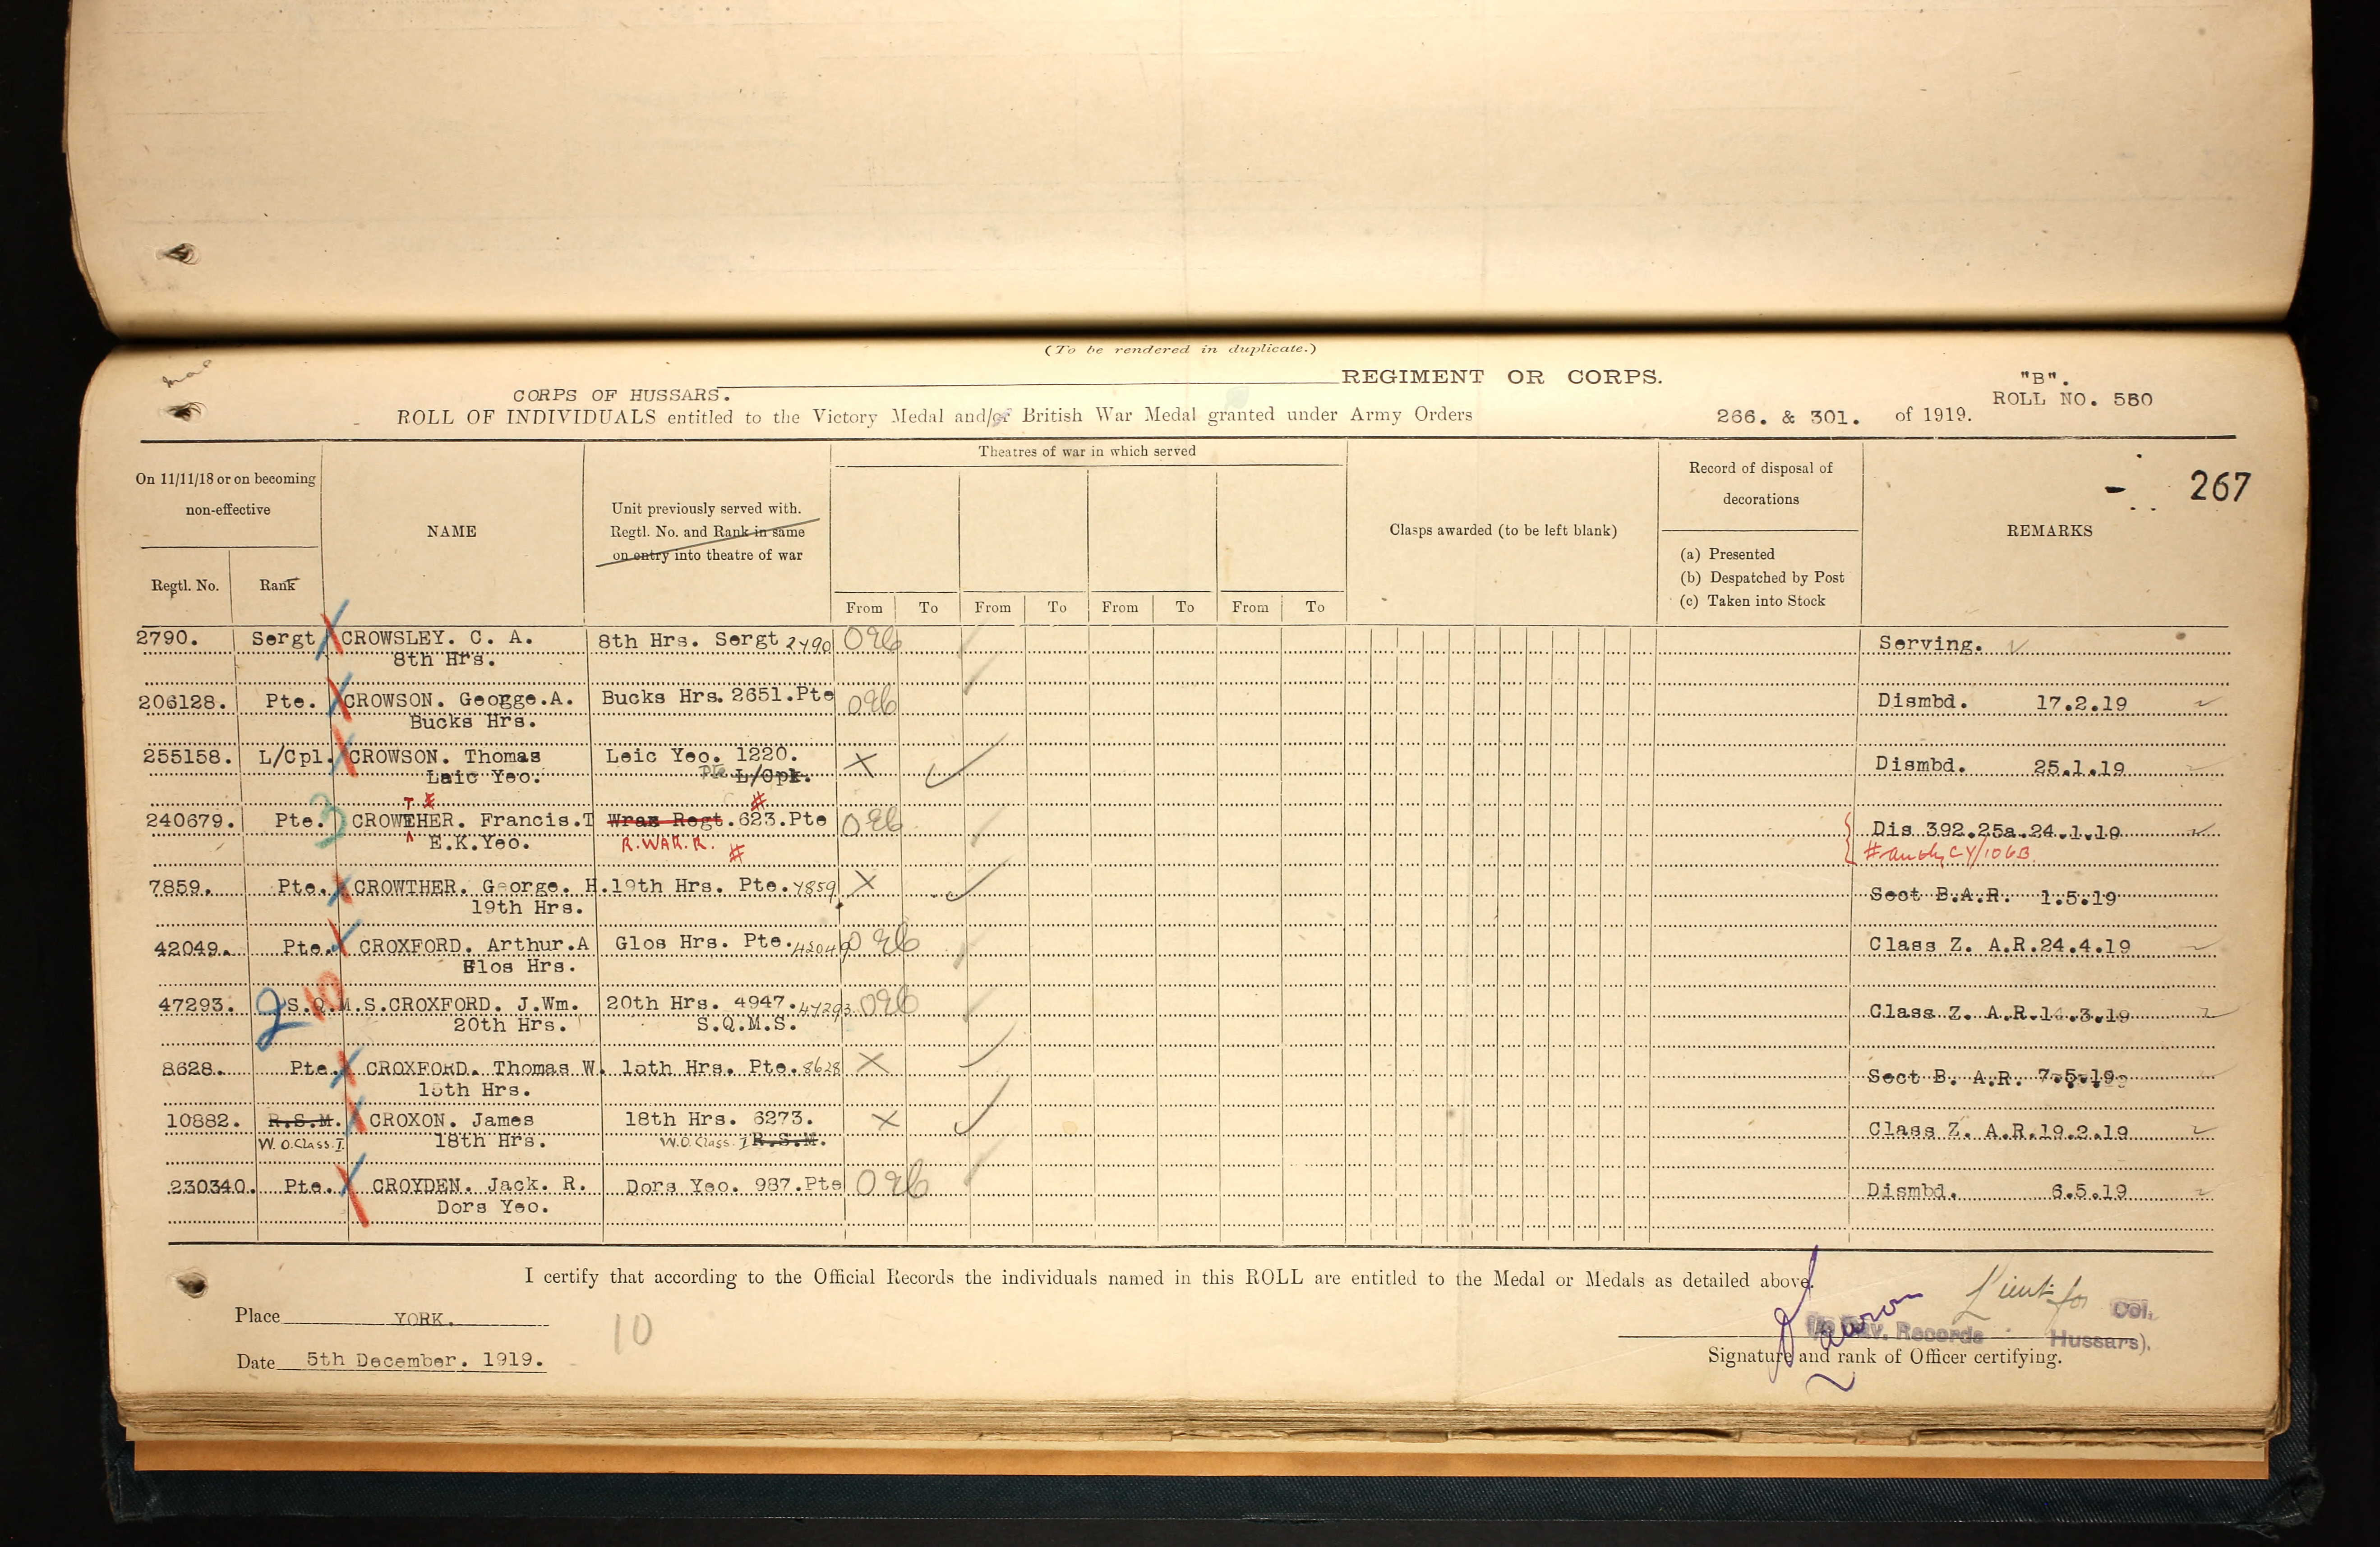 (To be rendered in duplicate.)
CORPS OF HUSSARS. REGIMENT OR CORPS. "B".
ROLL NO. 550
ROLL OF INDIVIDUALS entitled to the Victory Medal and/or British War Medal granted under Army Orders 266. & 301. of 1919.
267
On 11/11/18 or on becoming non-effective
Regtl. No. Rank
NAME
Unit previously served with.
Regtl. No. and Rank in same
on entry into theatre of war
Theatres of war in which served
From To From To From To From To
Clasps awarded (to be left blank)
Record of disposal of
decorations
(a) Presented
(b) Despatched by Post
(c) Taken into Stock
REMARKS
2790. Sergt CROWSLEY. C. A. 8th Hrs. Sergt 2790 Serving.
8th Hrs.
206128. Pte. CROWSON. Geogge.A. Bucks Hrs. 2651.Pte Dismbd. 17.2.19
Bucks Hrs.
255158. L/Cpl. CROWSON. Thomas Leic Yeo. 1220. X Dismbd. 25.1.19
Leic Yeo. Pte L/Cpl.
T # #
240679. Pte. 3 CROWTHER. Francis.T Regt.623.Pte Dis 392.25a.24.1.19
E.K.Yeo. R.WAR.R. # # CY/106B
7859. Pte. CROWTHER. George. H.19th Hrs. Pte. 7859 X Sect B.A.R. 1.5.19
19th Hrs.
42049. Pte. CROXFORD. Arthur.A Glos Hrs. Pte. 42049 Class Z. A.R.24.4.19
Glos Hrs.
47293. 2 10 S.Q.M.S.CROXFORD. J.Wm. 20th Hrs. 4947. 47293 Class Z. A.R.14.3.19
20th Hrs. S.Q.M.S.
8628. Pte. CROXFORD. Thomas W. 15th Hrs. Pte. 8628 X Sect B. A.R. 7.5.19
15th Hrs.
10882. R.S.M. CROXON. James 18th Hrs. 6273. X Class Z. A.R.19.2.19
W.O.Class.I. 18th Hrs. W.O.Class I R.S.M.
230340. Pte. CROYDEN. Jack. R. Dors Yeo. 987.Pte Dismbd. 6.5.19
Dors Yeo.
I certify that according to the Official Records the individuals named in this ROLL are entitled to the Medal or Medals as detailed above.
Lieut for Col.
Place YORK. 10 Records Hussars).
Date 5th December. 1919. Signature and rank of Officer certifying.